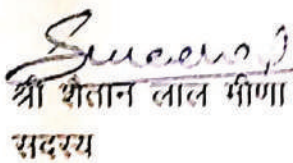 श्री शैतान लाल मीणा
सदस्य